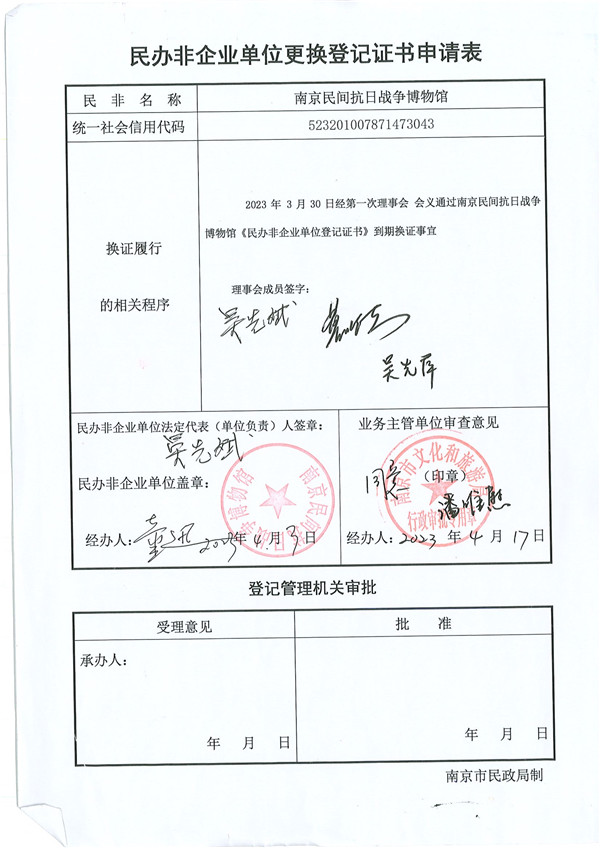 民办非企业单位更换登记证书申请表
民非名称 南京民间抗日战争博物馆
统一社会信用代码 523201007871473043
换证履行
的相关程序
2023 年 3 月 30 日经第一次理事会 会义通过南京民间抗日战争
博物馆《民办非企业单位登记证书》到期换证事宜
理事会成员签字：
吴先斌
吴先库
民办非企业单位法定代表（单位负责）人签章：
吴先斌
民办非企业单位盖章：
南京民间抗日战争博物馆
经办人： 2023年 4 月 3 日
业务主管单位审查意见
同意 （印章）
南京市文化和旅游局
行政审批专用章
经办人：2023 年 4 月 17 日
登记管理机关审批
受理意见 批 准
承办人：
年 月 日 年 月 日
南京市民政局制